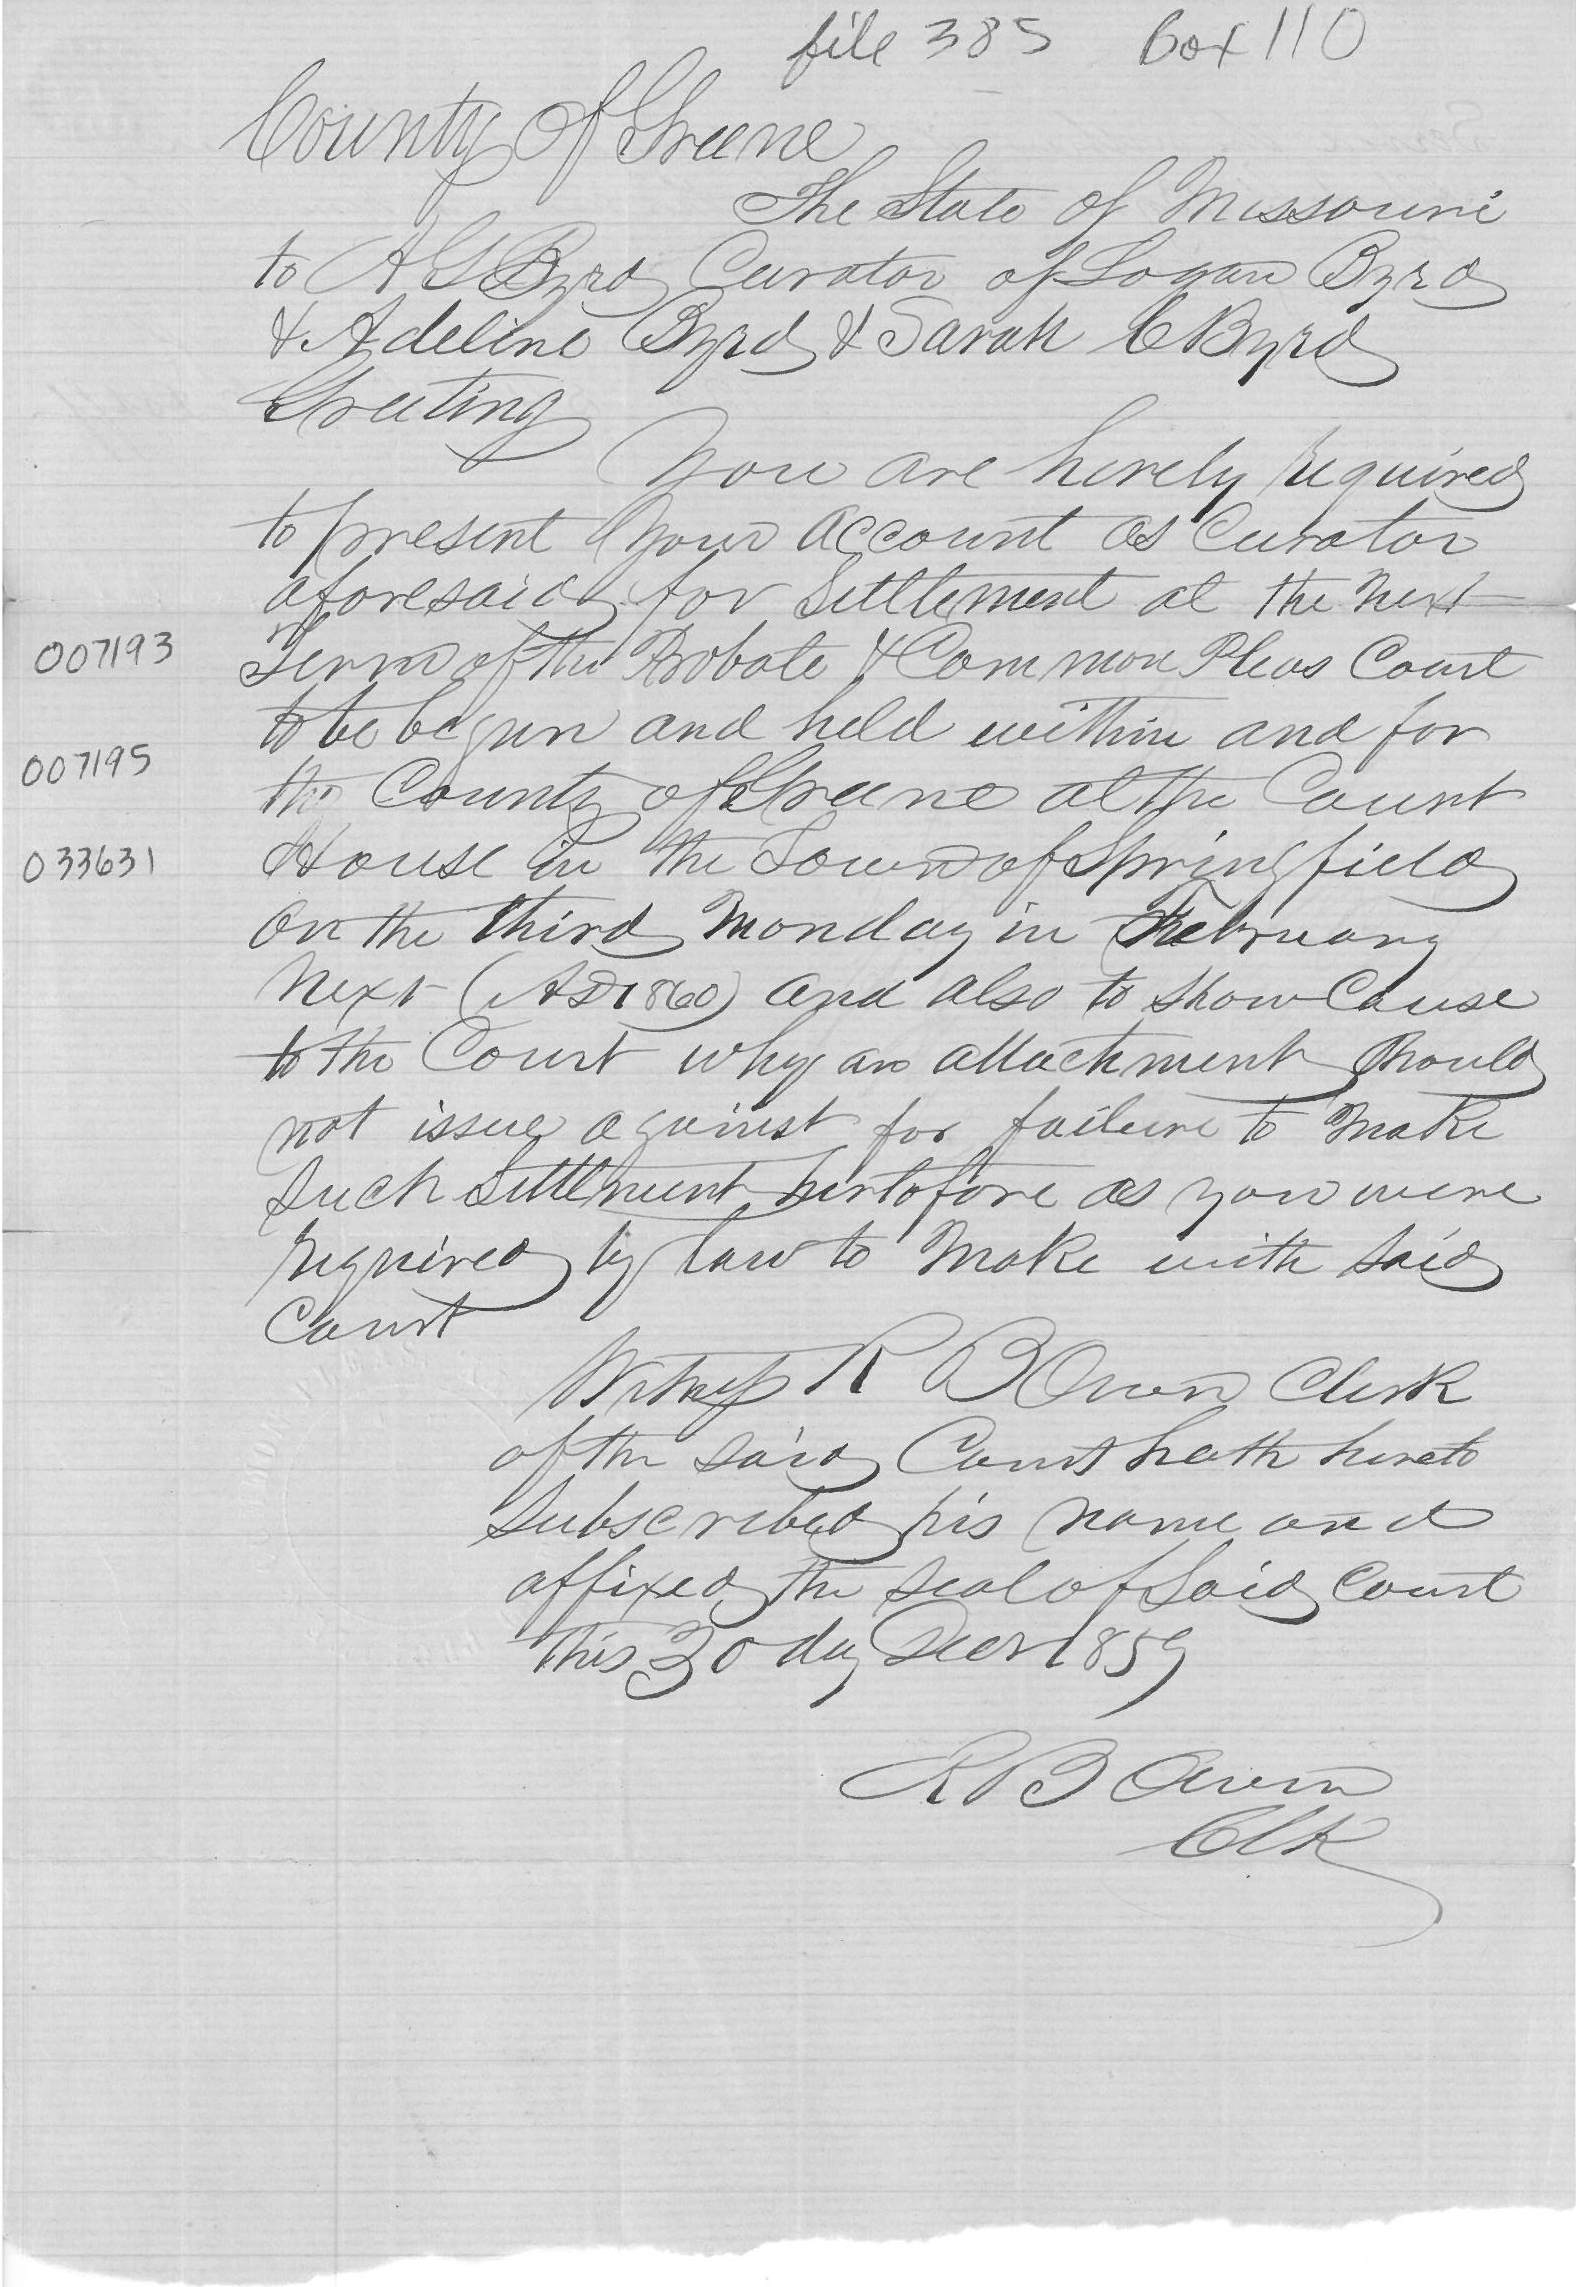 file 385 Box 110
County of Greene
The State of Missouri
to A G Byrd Curator of Logan Byrd
& Adeline Byrd & Sarah C Byrd
Greeting
You are herely required
to present your account as Curator
aforesaid for Settlement at the next
Term of the Probate & Common Pleas Court
to be begun and held within and for
the County of Greene at the Court
House in the Town of Springfield
on the third Monday in February
next (AD 1860) and also to show Cause
to the Court why an attachment Should
not issue against for failure to make
such Settlment hertofore as you were
required by law to make with said
Court
Witness R B Owen Clerk
of the said Court hath hereto
subscribed his name and
affixed the seal of Said Court
this 30 day Decr 1859
R B Owen
Clk
007193
007195
033631